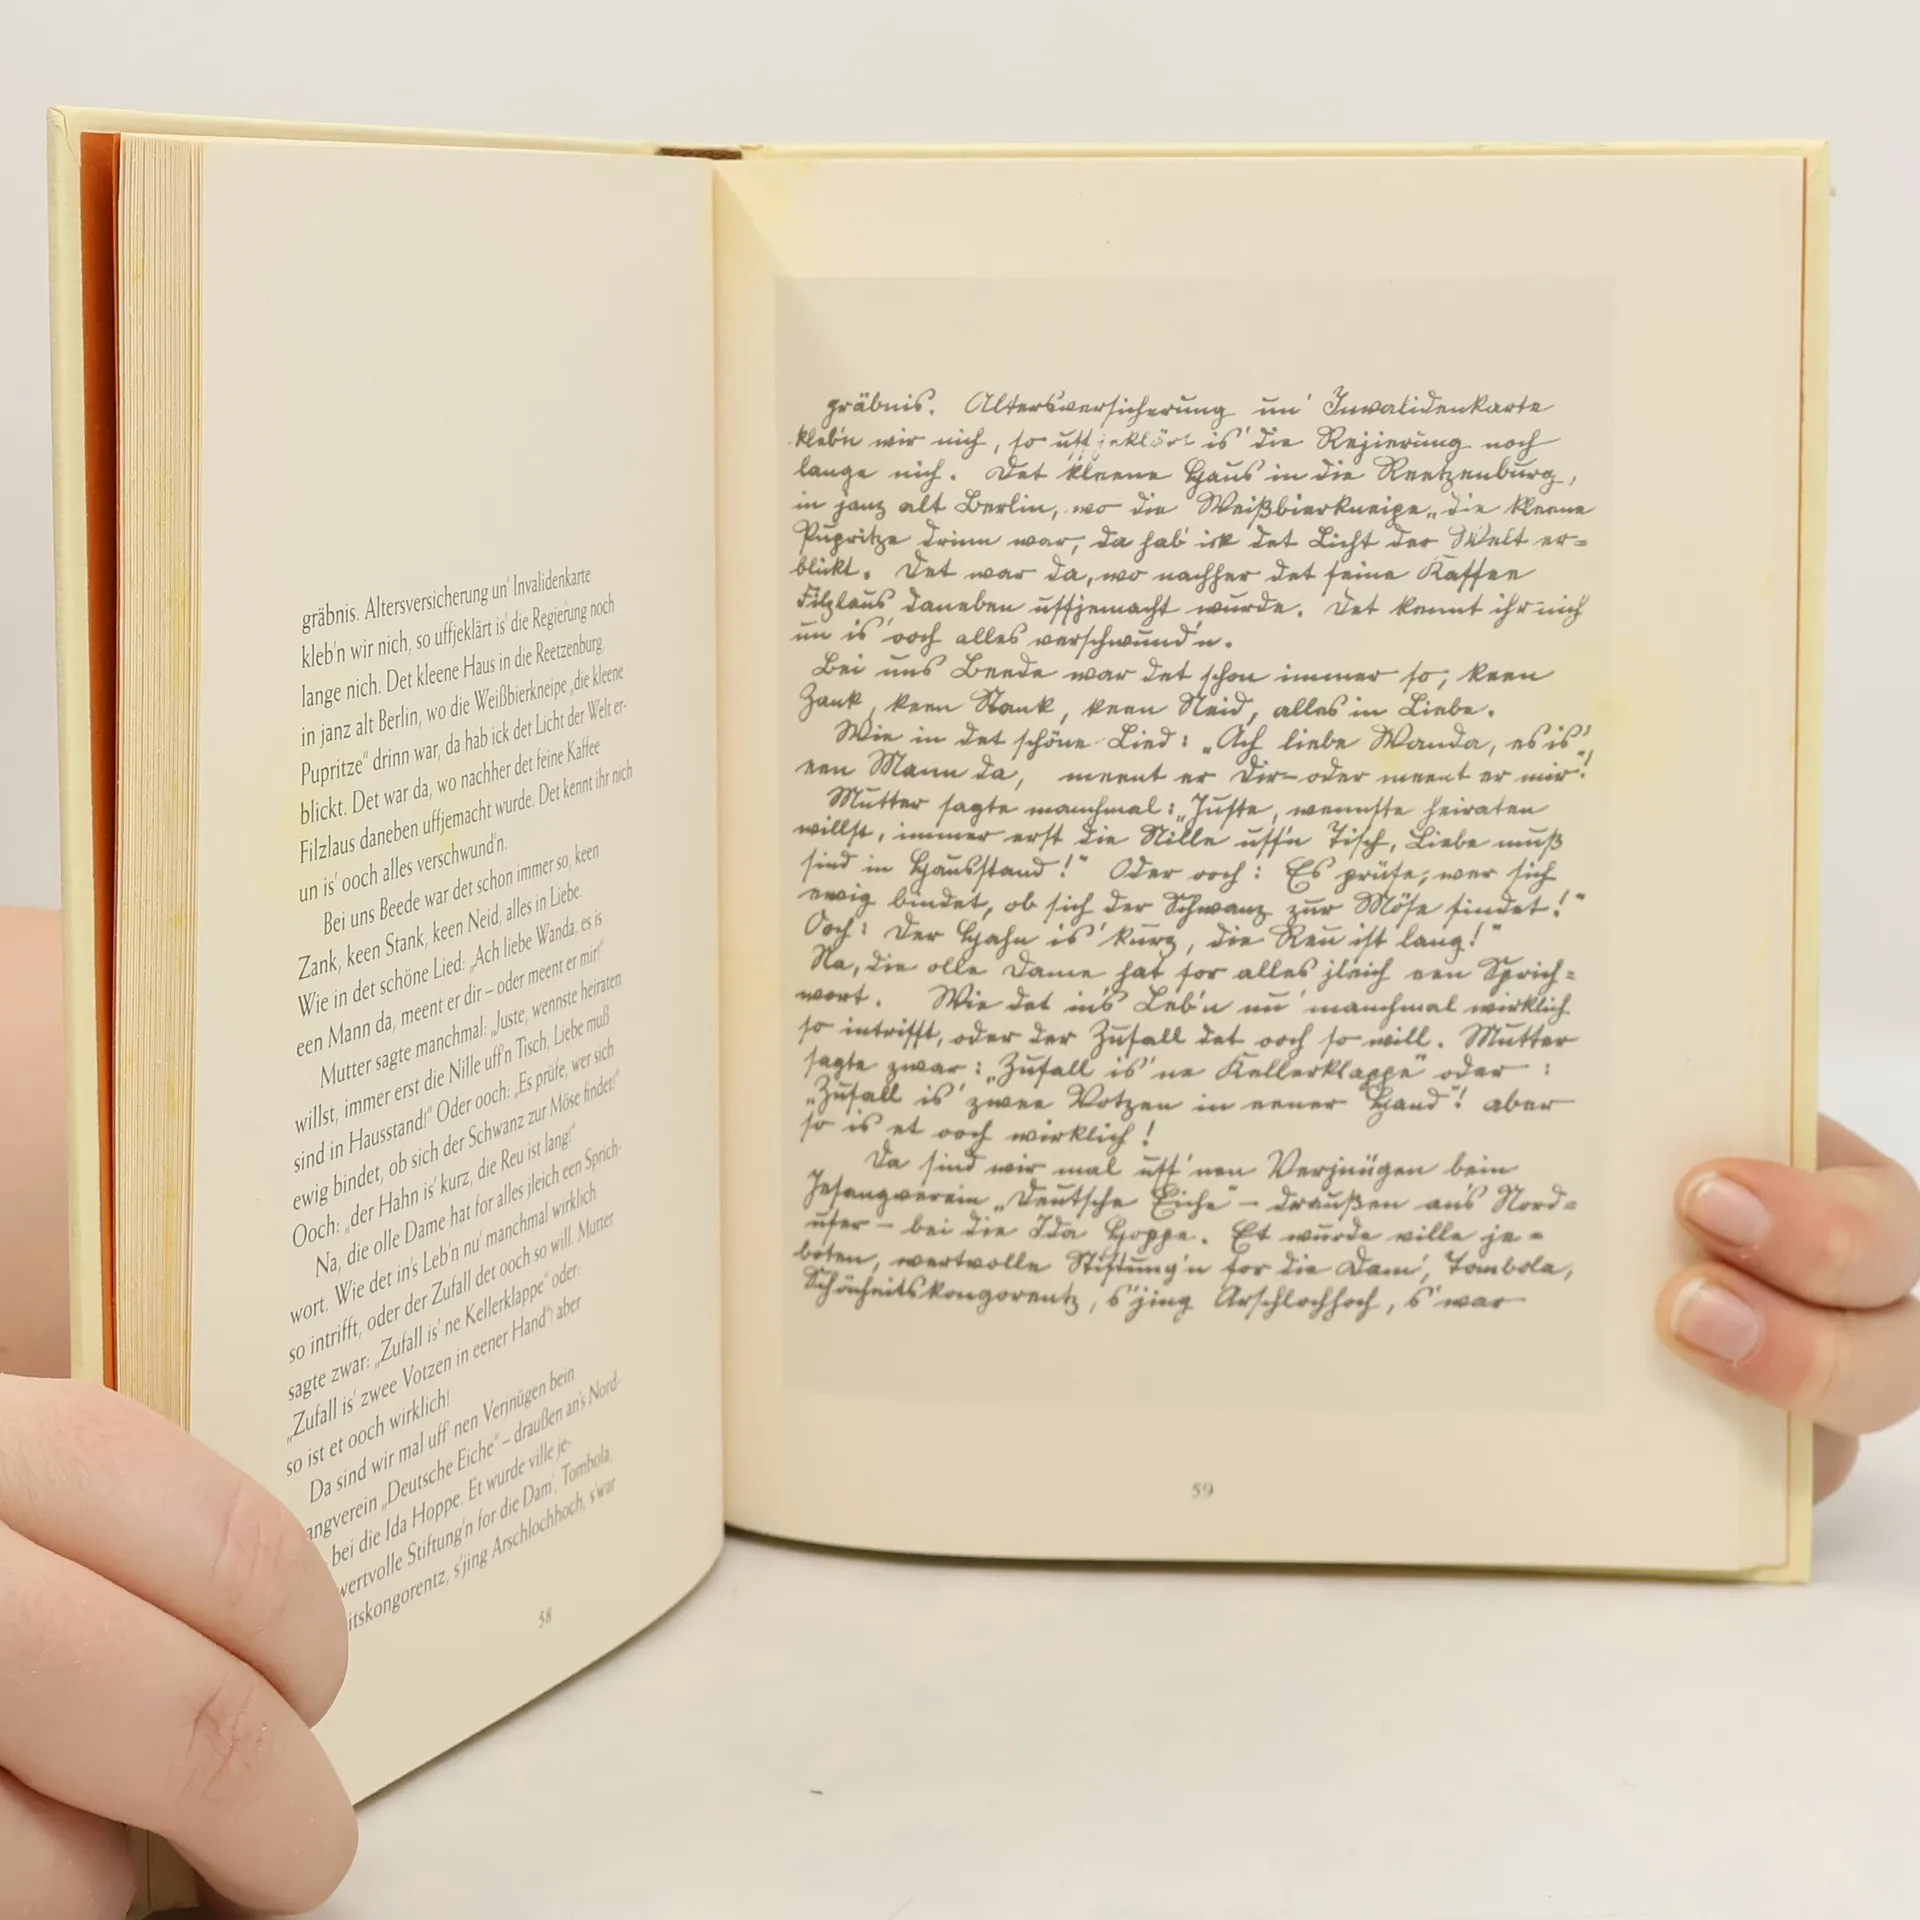 gräbnis. Altersversicherung un' Invalidenkarte
kleb'n wir nich, so uffjeklärt is' die Regierung noch
lange nich. Det kleene Haus in die Reetzenburg,
in janz alt Berlin, wo die Weißbierkneipe „die kleene
Pupritze“ drinn war, da hab ick det Licht der Welt er-
blickt. Det war da, wo nachher det feine Kaffee
Filzlaus daneben uffjemacht wurde. Det kennt ihr nich
un is' ooch alles verschwund'n.
Bei uns Beede war det schon immer so, keen
Zank, keen Stank, keen Neid, alles in Liebe.
Wie in det schöne Lied: „Ach liebe Wanda, es is
een Mann da, meent er dir – oder meent er mir!“
Mutter sagte manchmal: „Juste, wennste heiraten
willst, immer erst die Nille uff'n Tisch, Liebe muß
sind in Hausstand!“ Oder ooch: „Es prüfe, wer sich
ewig bindet, ob sich der Schwanz zur Möse findet!“
Ooch: „der Hahn is' kurz, die Reu ist lang!“
Na, die olle Dame hat for alles jleich een Sprich-
wort. Wie det in's Leb'n nu' manchmal wirklich
so intrifft, oder der Zufall det ooch so will. Mutter
sagte zwar: „Zufall is' ne Kellerklappe“ oder:
„Zufall is' zwee Votzen in eener Hand“! aber
so ist et ooch wirklich!
Da sind wir mal uff' nen Verjnügen bein
angverein „Deutsche Eiche“ – draußen an's Nord-
bei die Ida Hoppe. Et wurde ville je-
wertvolle Stiftung'n for die Dam', Tombola,
itskongorentz, s'jing Arschlochhoch, s'war
58
gräbnis. Altersversicherung un' Invalidenkarte
kleb'n wir nich, so uffjeklärt is' die Rejierung noch
lange nich. Det kleene Haus in die Reetzenburg,
in janz alt Berlin, wo die Weißbierkneipe „die kleene
Pupritze drinn war, da hab' ick det Licht der Welt er=
blickt. Det war da, wo nachher det feine Kaffee
Filzlaus daneben uffjemacht wurde. Det kennt ihr nich
un is' ooch alles verschwund'n.
Bei uns Beede war det schon immer so, keen
Zank, keen Stank, keen Neid, alles in Liebe.
Wie in det schöne Lied: „Ach liebe Wanda, es is'
een Mann da, meent er dir – oder meent er mir!“
Mutter sagte manchmal: „Juste, wennste heiraten
willst, immer erst die Nille uff'n Tisch, Liebe muß
sind in Hausstand!“ Oder ooch: Es prüfe, wer sich
ewig bindet, ob sich der Schwanz zur Möse findet!“
Ooch: Der Hahn is' kurz, die Reu ist lang!“
Na, die olle Dame hat for alles jleich een Sprich=
wort. Wie det in's Leb'n nu' manchmal wirklich
so intrifft, oder der Zufall det ooch so will. Mutter
sagte zwar: „Zufall is' ne Kellerklappe“ oder:
„Zufall is' zwee Votzen in eener Hand“! aber
so is et ooch wirklich!
Da sind wir mal uff' nen Verjnügen bein
Jesangverein „Deutsche Eiche“ – draußen an's Nord=
ufer – bei die Ida Hoppe. Et wurde ville je=
boten, wertvolle Stiftung'n for die Dam', Tombola,
Schönheitskongorentz, s'jing Arschlochhoch, s'war
59